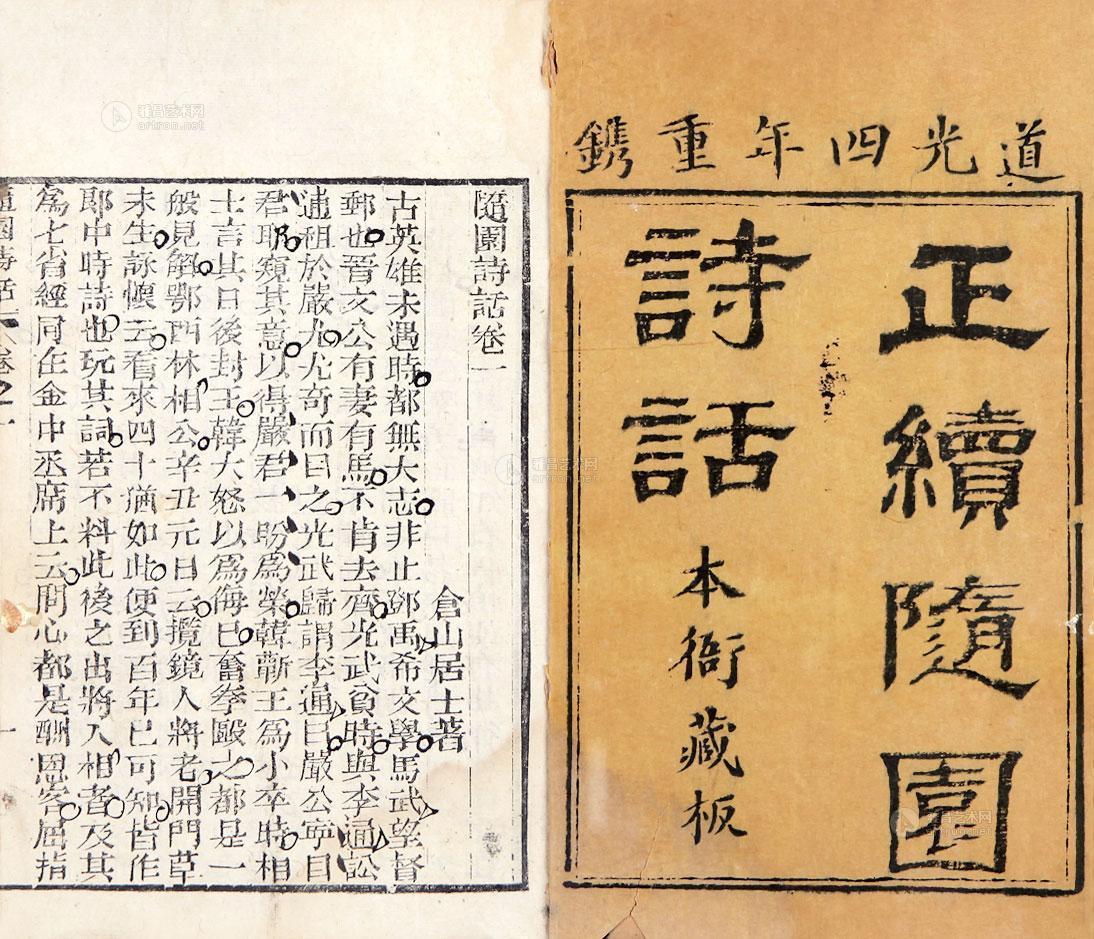 道光四年重鐫
正續隨園
詩話
本衙藏板
隨園詩話卷一
倉山居士著
古英雄未遇時都無大志非止鄧禹希文學馬武望督
郵也晉文公有妻有馬不肯去齊光武貧時與李通訟
逋租於嚴尤尤奇而目之光武歸謂李通曰嚴公寧目
君耶窺其意以得嚴君一盼爲榮韓蘄王爲小卒時相
士言其日後封王韓大怒以爲侮已奮拳毆之都是一
般見解鄂西林相公辛丑元日云攬鏡人將老開門草
未生詠懷云看來四十猶如此便到百年已可知皆作
郎中時詩也玩其詞若不料此後之出將入相者及其
爲七省經同在金中丞席上云問心都是酬恩客屈指
隨園詩話 卷之一
一
雅昌艺术网
artron.net
雅昌艺术网
artron.net
雅昌艺术网
artron.net